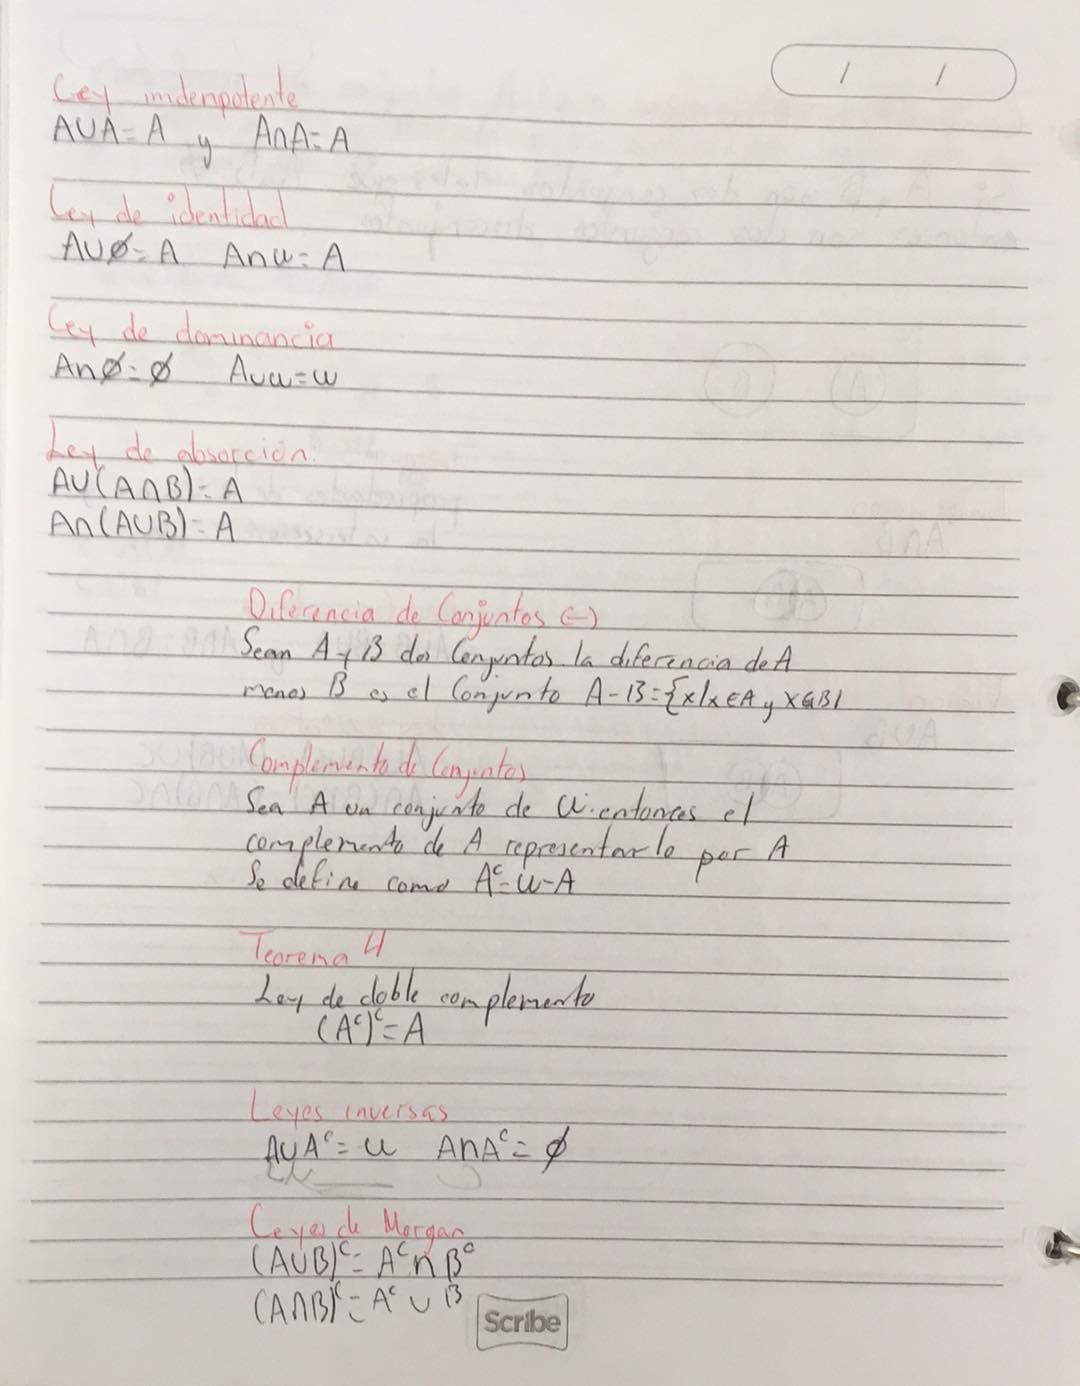 Ley indempotente
A∪A=A y A∩A=A
Ley de identidad
A∪∅=A A∩u=A
Ley de dominancia
A∩∅=∅ A∪u=u
Ley de absorción.
A∪(A∩B)=A
A∩(A∪B)=A
Diferencia de Conjuntos (-)
Sean A y B dos Conjuntos la diferencia de A
menos B es el Conjunto A-B={x/x∈A y x∉B/
Complemento de Conjuntos
Sea A un conjunto de U. entonces el
complemento de A representarlo por A
Se define como Aᶜ=U-A
Teorema 4
Ley de doble complemento
(Aᶜ)ᶜ=A
Leyes inversas
A∪Aᶜ=u A∩Aᶜ=∅
Leyes de Morgan
(A∪B)ᶜ=Aᶜ∩Bᶜ
(A∩B)ᶜ=Aᶜ∪B
Scribe